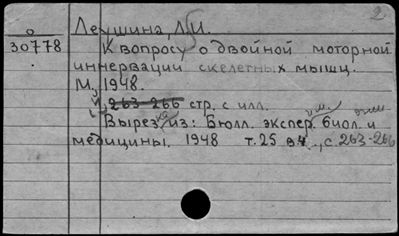 2
о
30778
Леушина, Л.И.
К вопросу о двойной моторной
иннервации скелетных мышц.
М., 1948.
263-266 стр. с илл.
Вырезка из: Бюлл. экспер. биол. и
медицины. 1948 т. 25 в 4., с. 263-266